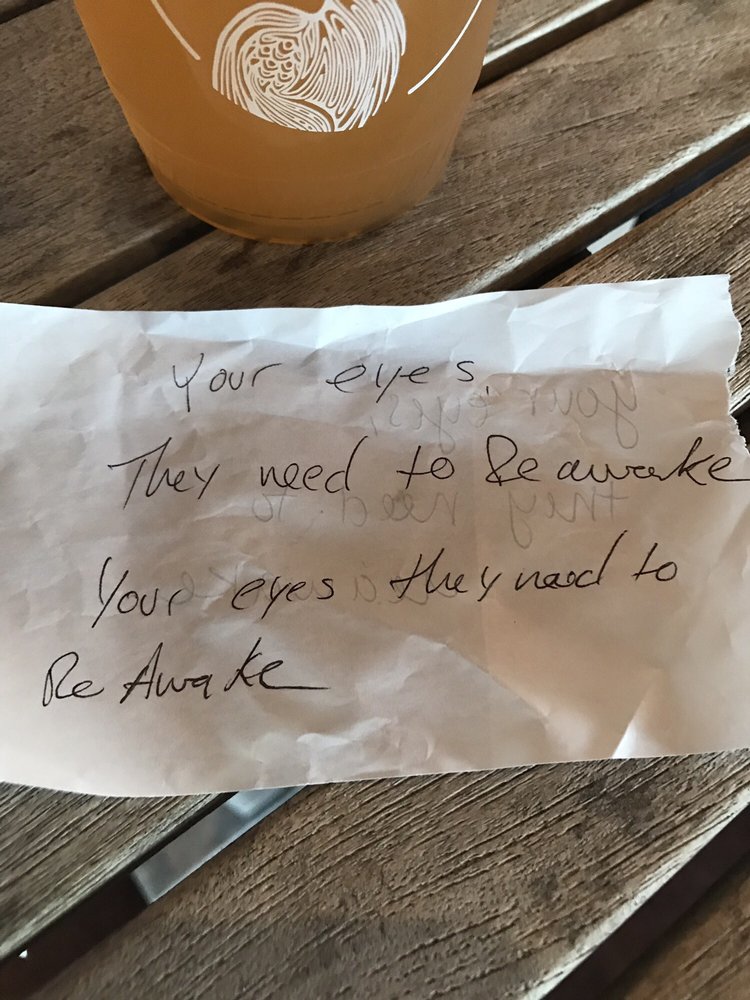 Your eyes.
They need to Reawake
Your eyes they need to
Re Awake